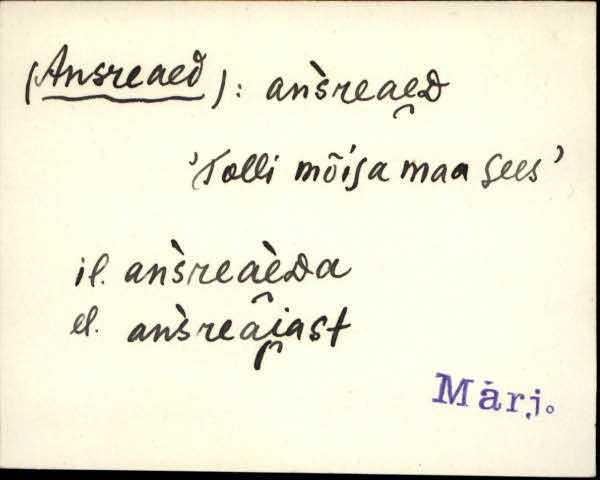 (Ansreaed): an̆̀sreae̯D
'Tolli mõisa maa sees'
il. aǹsreaèDa
el. aǹsreâi̯ast
Märj.